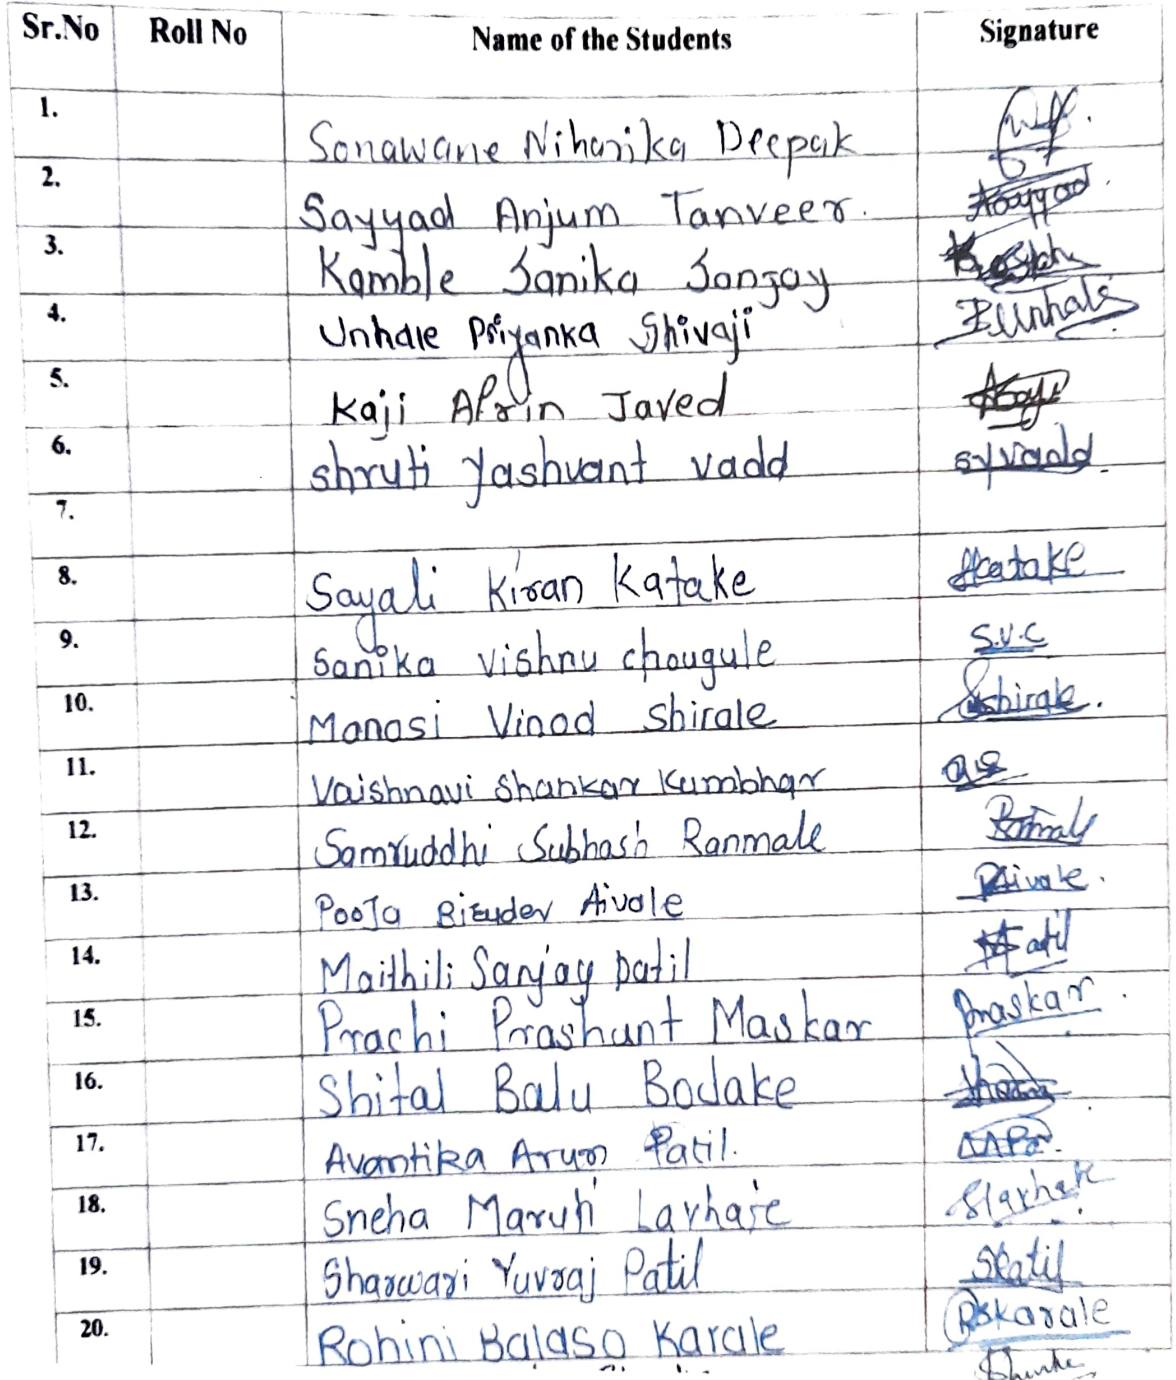 Sr.No Roll No Name of the Students Signature
1. Sonawane Niharika Deepak
2. Sayyad Anjum Tanveer. Asayyad.
3. Kamble Sanika Sanjay
4. Unhale Priyanka Shivaji PUnhale
5. Kaji Afrin Javed AKaji
6. shruti Yashvant vadd syvadd
7.
8. Sayali Kiran Katake SKatake
9. Sanika vishnu chougule S.V.C
10. Manasi Vinod Shirale Shirale.
11. Vaishnavi Shankar Kumbhar
12. Samruddhi Subhash Ranmale
13. PooJa Aivale Aivale.
14. Maithili Sanjay patil Patil
15. Prachi Prashant Maskar Pmaskar.
16. Shital Balu Bodake
17. Avantika Arun Patil. AAPa.
18. Sneha Maruti Larhate Slarhate
19. Sharwari Yuvraj Patil SPatil
20. Rohini Balaso Karale RBKarale